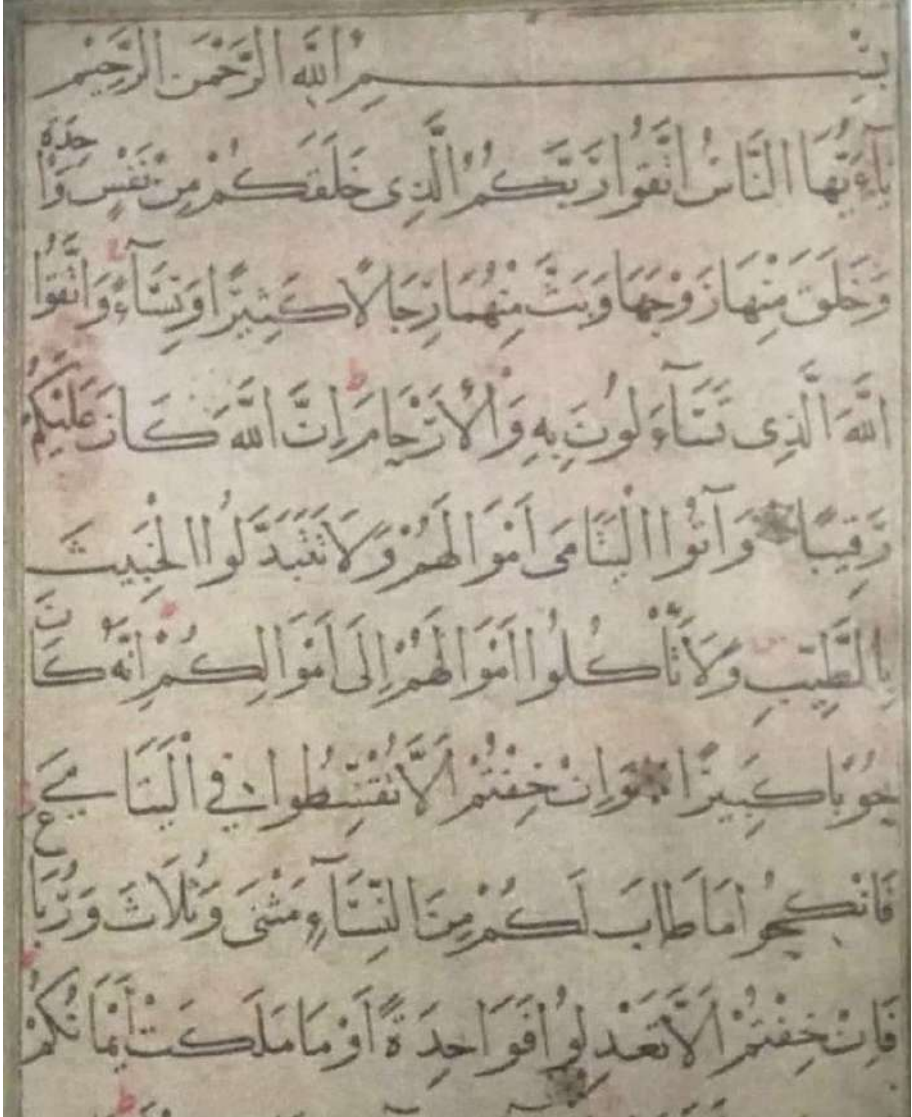 بِسْمِ اللَّهِ الرَّحْمَنِ الرَّحِيمِ
يَآءَيُّهَا النَّاسُ اتَّقُوا رَبَّكُمُ الَّذِى خَلَقَكُمْ مِنْ نَفْسٍ وَاحِدَةٍ
وَخَلَقَ مِنْهَا زَوْجَهَا وَبَثَّ مِنْهُمَا رِجَالًا كَثِيرًا وَنِسَآءً وَاتَّقُوا
اللَّهَ الَّذِى تَسَّآءَلُونَ بِهِ وَالْأَرْحَامَ إِنَّ اللَّهَ كَانَ عَلَيْكُمْ
رَّقِيبًا وَآتُوا الْيَتَامَى أَمْوَالَهُمْ وَلَا تَتَبَدَّلُوا الْخَبِيثَ
بِالطَّيِّبِ وَلَا تَأْكُلُوا أَمْوَالَهُمْ إِلَى أَمْوَالِكُمْ إِنَّهُ كَانَ
حُوبًا كَبِيرًا وَإِنْ خِفْتُمْ أَلَّا تُقْسِطُوا فِي الْيَتَامَى
فَانْكِحُوا مَا طَابَ لَكُمْ مِنَ النِّسَآءِ مَثْنَى وَثُلَاثَ وَرُبَاعَ
فَإِنْ خِفْتُمْ أَلَّا تَعْدِلُوا فَوَاحِدَةً أَوْ مَا مَلَكَتْ أَيْمَانُكُمْ